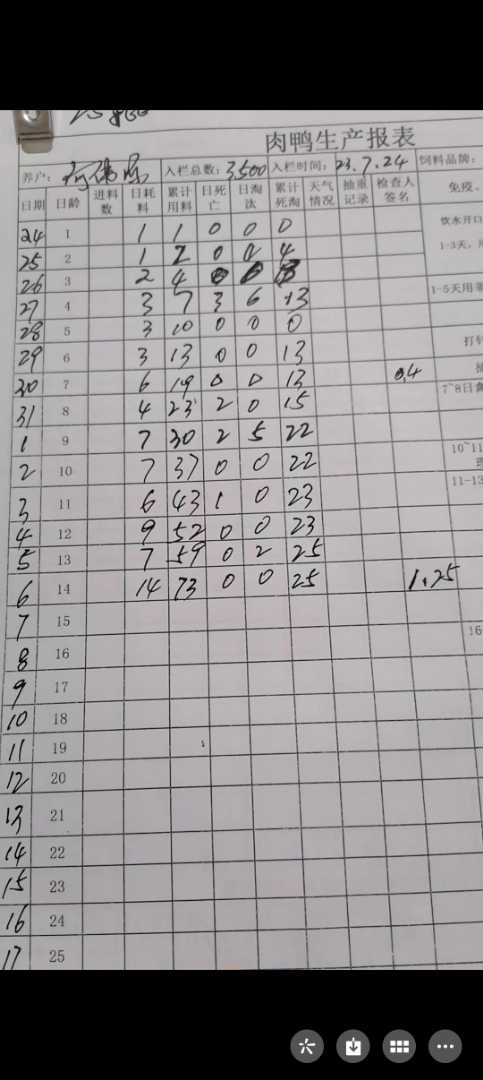 肉鸭生产报表
养户: 入栏总数: 3,500 入栏时间: 23.7.24 饲料品牌:
日期 日龄 进料数 日耗料 累计用料 日死亡 日淘汰 累计死淘 天气情况 抽重记录 检查人签名 免疫、
24 1 1 1 0 0 0 饮水开口
25 2 1 2 0 4 1-3天,
26 3 2 4
27 4 3 7 3 6 13 1-5天用
28 5 3 10 0 0 0
29 6 3 13 0 0 13 打针
30 7 6 19 0 0 13 0.4
31 8 4 23 2 0 15 7~8日
1 9 7 30 2 5 22
2 10 7 37 0 0 22 10~11
3 11 6 43 1 0 23 11-13
4 12 9 52 0 0 23
5 13 7 59 0 2 25
6 14 14 73 0 0 25 1.25
7 15
8 16 16
9 17
10 18
11 19
12 20
13 21
14 22
15 23
16 24
17 25